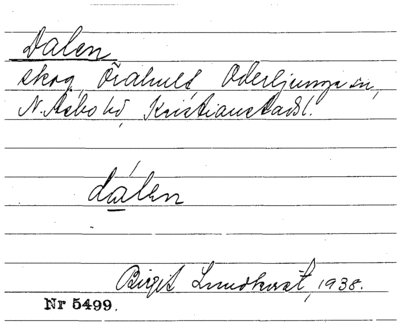 Dalen
skog, Örahult, Oderljunga sn,
N. Åsbo hd, Kristianstads l.
dálen
Birgit Lundkvist, 1938.
Nr 5499.